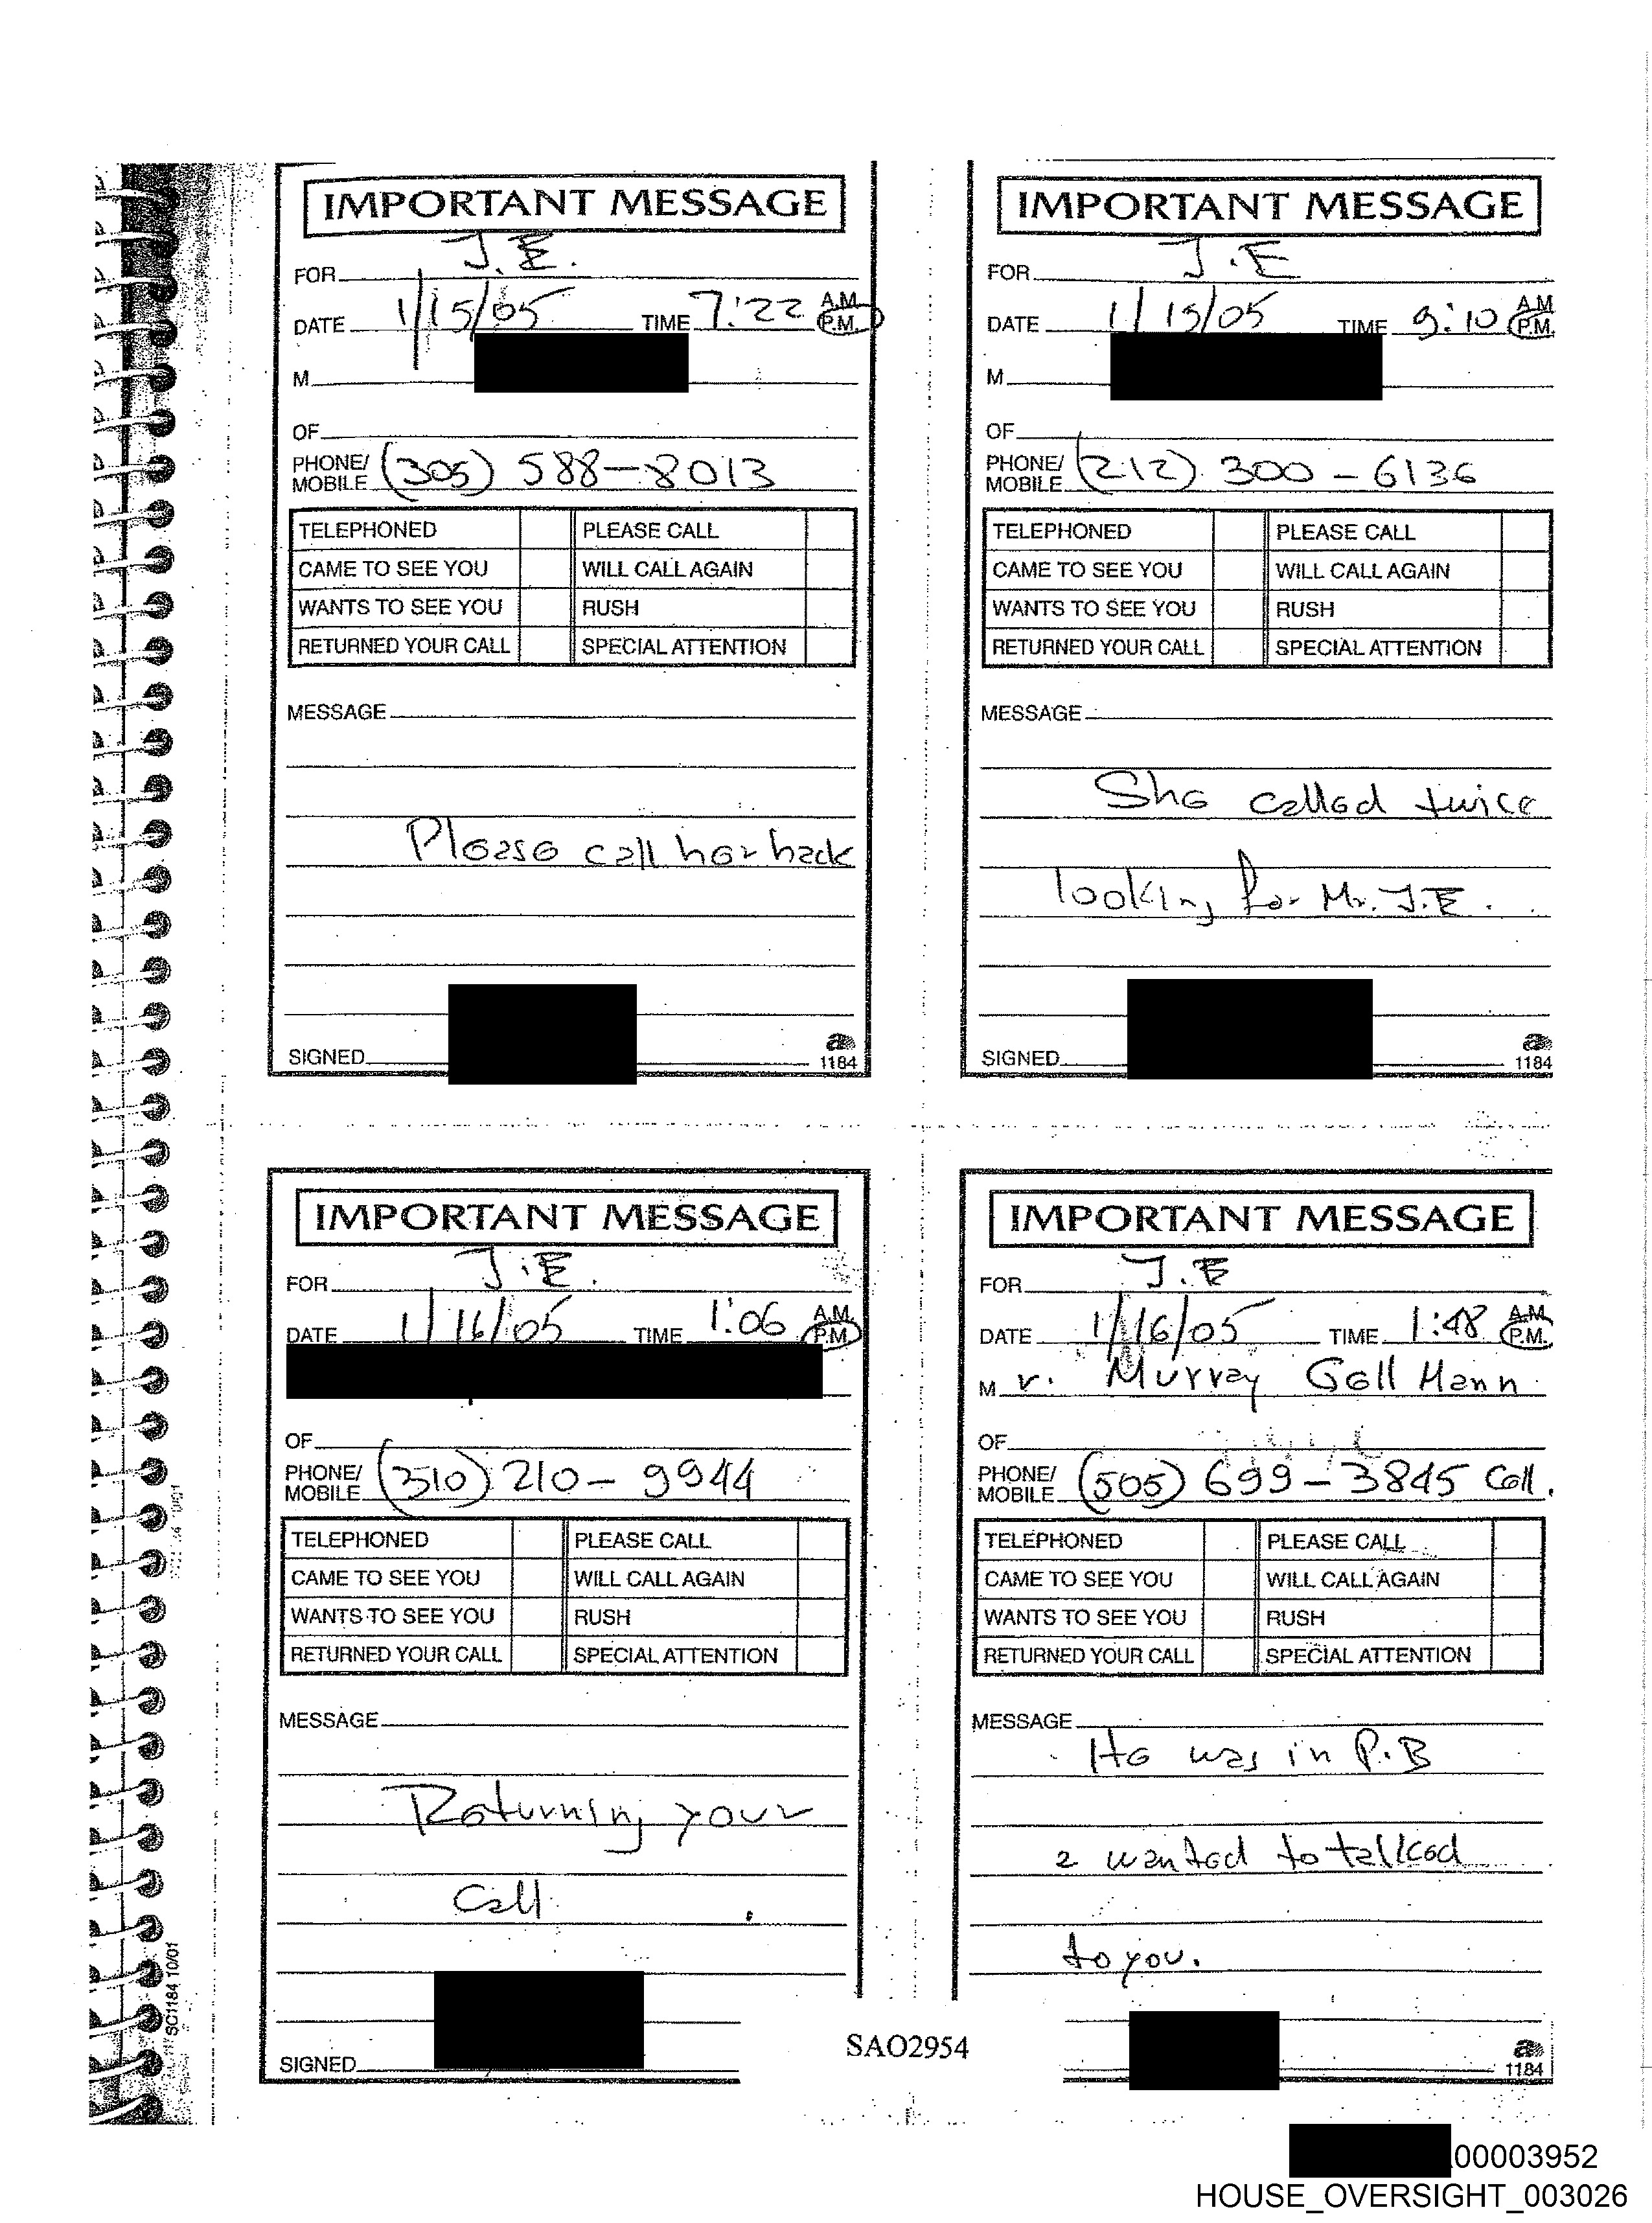 IMPORTANT MESSAGE
FOR J.E.
DATE 1/15/05 TIME 7:22 A.M. P.M.
M
OF
PHONE/ MOBILE (305) 588-8013
TELEPHONED PLEASE CALL
CAME TO SEE YOU WILL CALL AGAIN
WANTS TO SEE YOU RUSH
RETURNED YOUR CALL SPECIAL ATTENTION
MESSAGE
Please call her back
SIGNED
a
1184
IMPORTANT MESSAGE
FOR J.E
DATE 1/15/05 TIME 9:10 A.M P.M.
M
OF
PHONE/ MOBILE (212) 300-6136
TELEPHONED PLEASE CALL
CAME TO SEE YOU WILL CALL AGAIN
WANTS TO SEE YOU RUSH
RETURNED YOUR CALL SPECIAL ATTENTION
MESSAGE
She called twice
looking for Mr. J.E.
SIGNED
a
1184
IMPORTANT MESSAGE
FOR J.E.
DATE 1/16/05 TIME 1:06 A.M. P.M.
OF
PHONE/ MOBILE (310) 210-9944
TELEPHONED PLEASE CALL
CAME TO SEE YOU WILL CALL AGAIN
WANTS TO SEE YOU RUSH
RETURNED YOUR CALL SPECIAL ATTENTION
MESSAGE
Returning your
call.
SIGNED
IMPORTANT MESSAGE
FOR J.E
DATE 1/16/05 TIME 1:48 A.M. P.M.
Mr. Murray Gell Mann
OF
PHONE/ MOBILE (505) 699-3845 Cell.
TELEPHONED PLEASE CALL
CAME TO SEE YOU WILL CALL AGAIN
WANTS TO SEE YOU RUSH
RETURNED YOUR CALL SPECIAL ATTENTION
MESSAGE
He was in P.B
2 wanted to talked
to you.
a
1184
SC1184 10/01
SAO2954
00003952
HOUSE_OVERSIGHT_003026